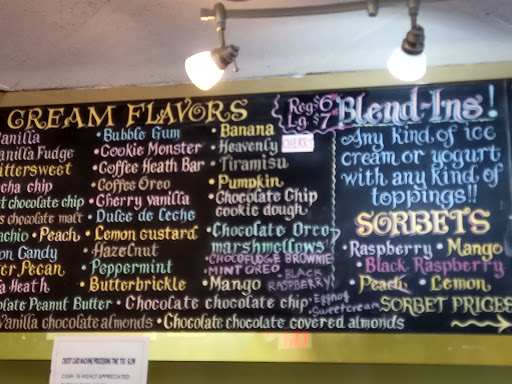 CREAM FLAVORS
Vanilla
Vanilla Fudge
Bittersweet
cha chip
t chocolate chip
s chocolate malt
achio • Peach
on Candy
er Pecan
a Heath
• Bubble Gum
• Cookie Monster
• Coffee Heath Bar
• Coffee Oreo
• Cherry vanilla
• Dulce de Leche
• Lemon custard
• Hazelnut
• Peppermint
• Butterbrickle
• Banana
• Heavenly
• Tiramisu
• Pumpkin
• Chocolate Chip
cookie dough
• Chocolate Oreo
marshmellows
• CHOCOFUDGE BROWNIE
• MINT OREO
• BLACK
RASPBERRY
• Mango
olate Peanut Butter • Chocolate chocolate chip
• Eggnog
• Sweetcream
Vanilla chocolate almonds • Chocolate chocolate covered almonds
Reg $6
Lg. $7
Blend-Ins!
Any kind of ice
cream or yogurt
with any kind of
toppings!!
SORBETS
• Raspberry • Mango
• Black Raspberry
• Peach • Lemon
SORBET PRICES
CREDIT CARD MACHINE PROCESSING TIME TOO SLOW
CASH IS HIGHLY APPRECIATED